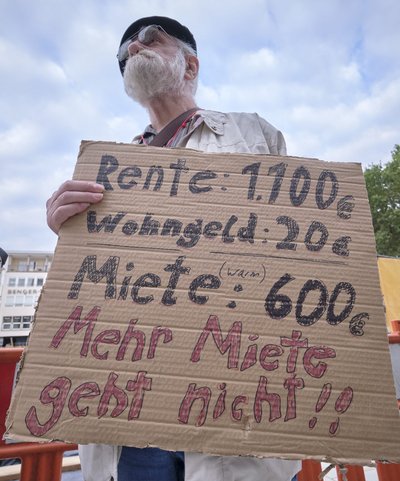 Rente: 1.100€
Wohngeld: 20€
Miete: (warm) 600€
Mehr Miete
geht nicht!!